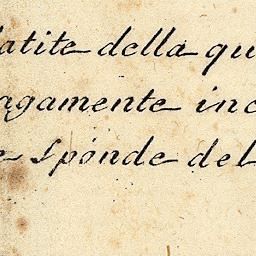 latite della qu
agamente inc
e sponde del